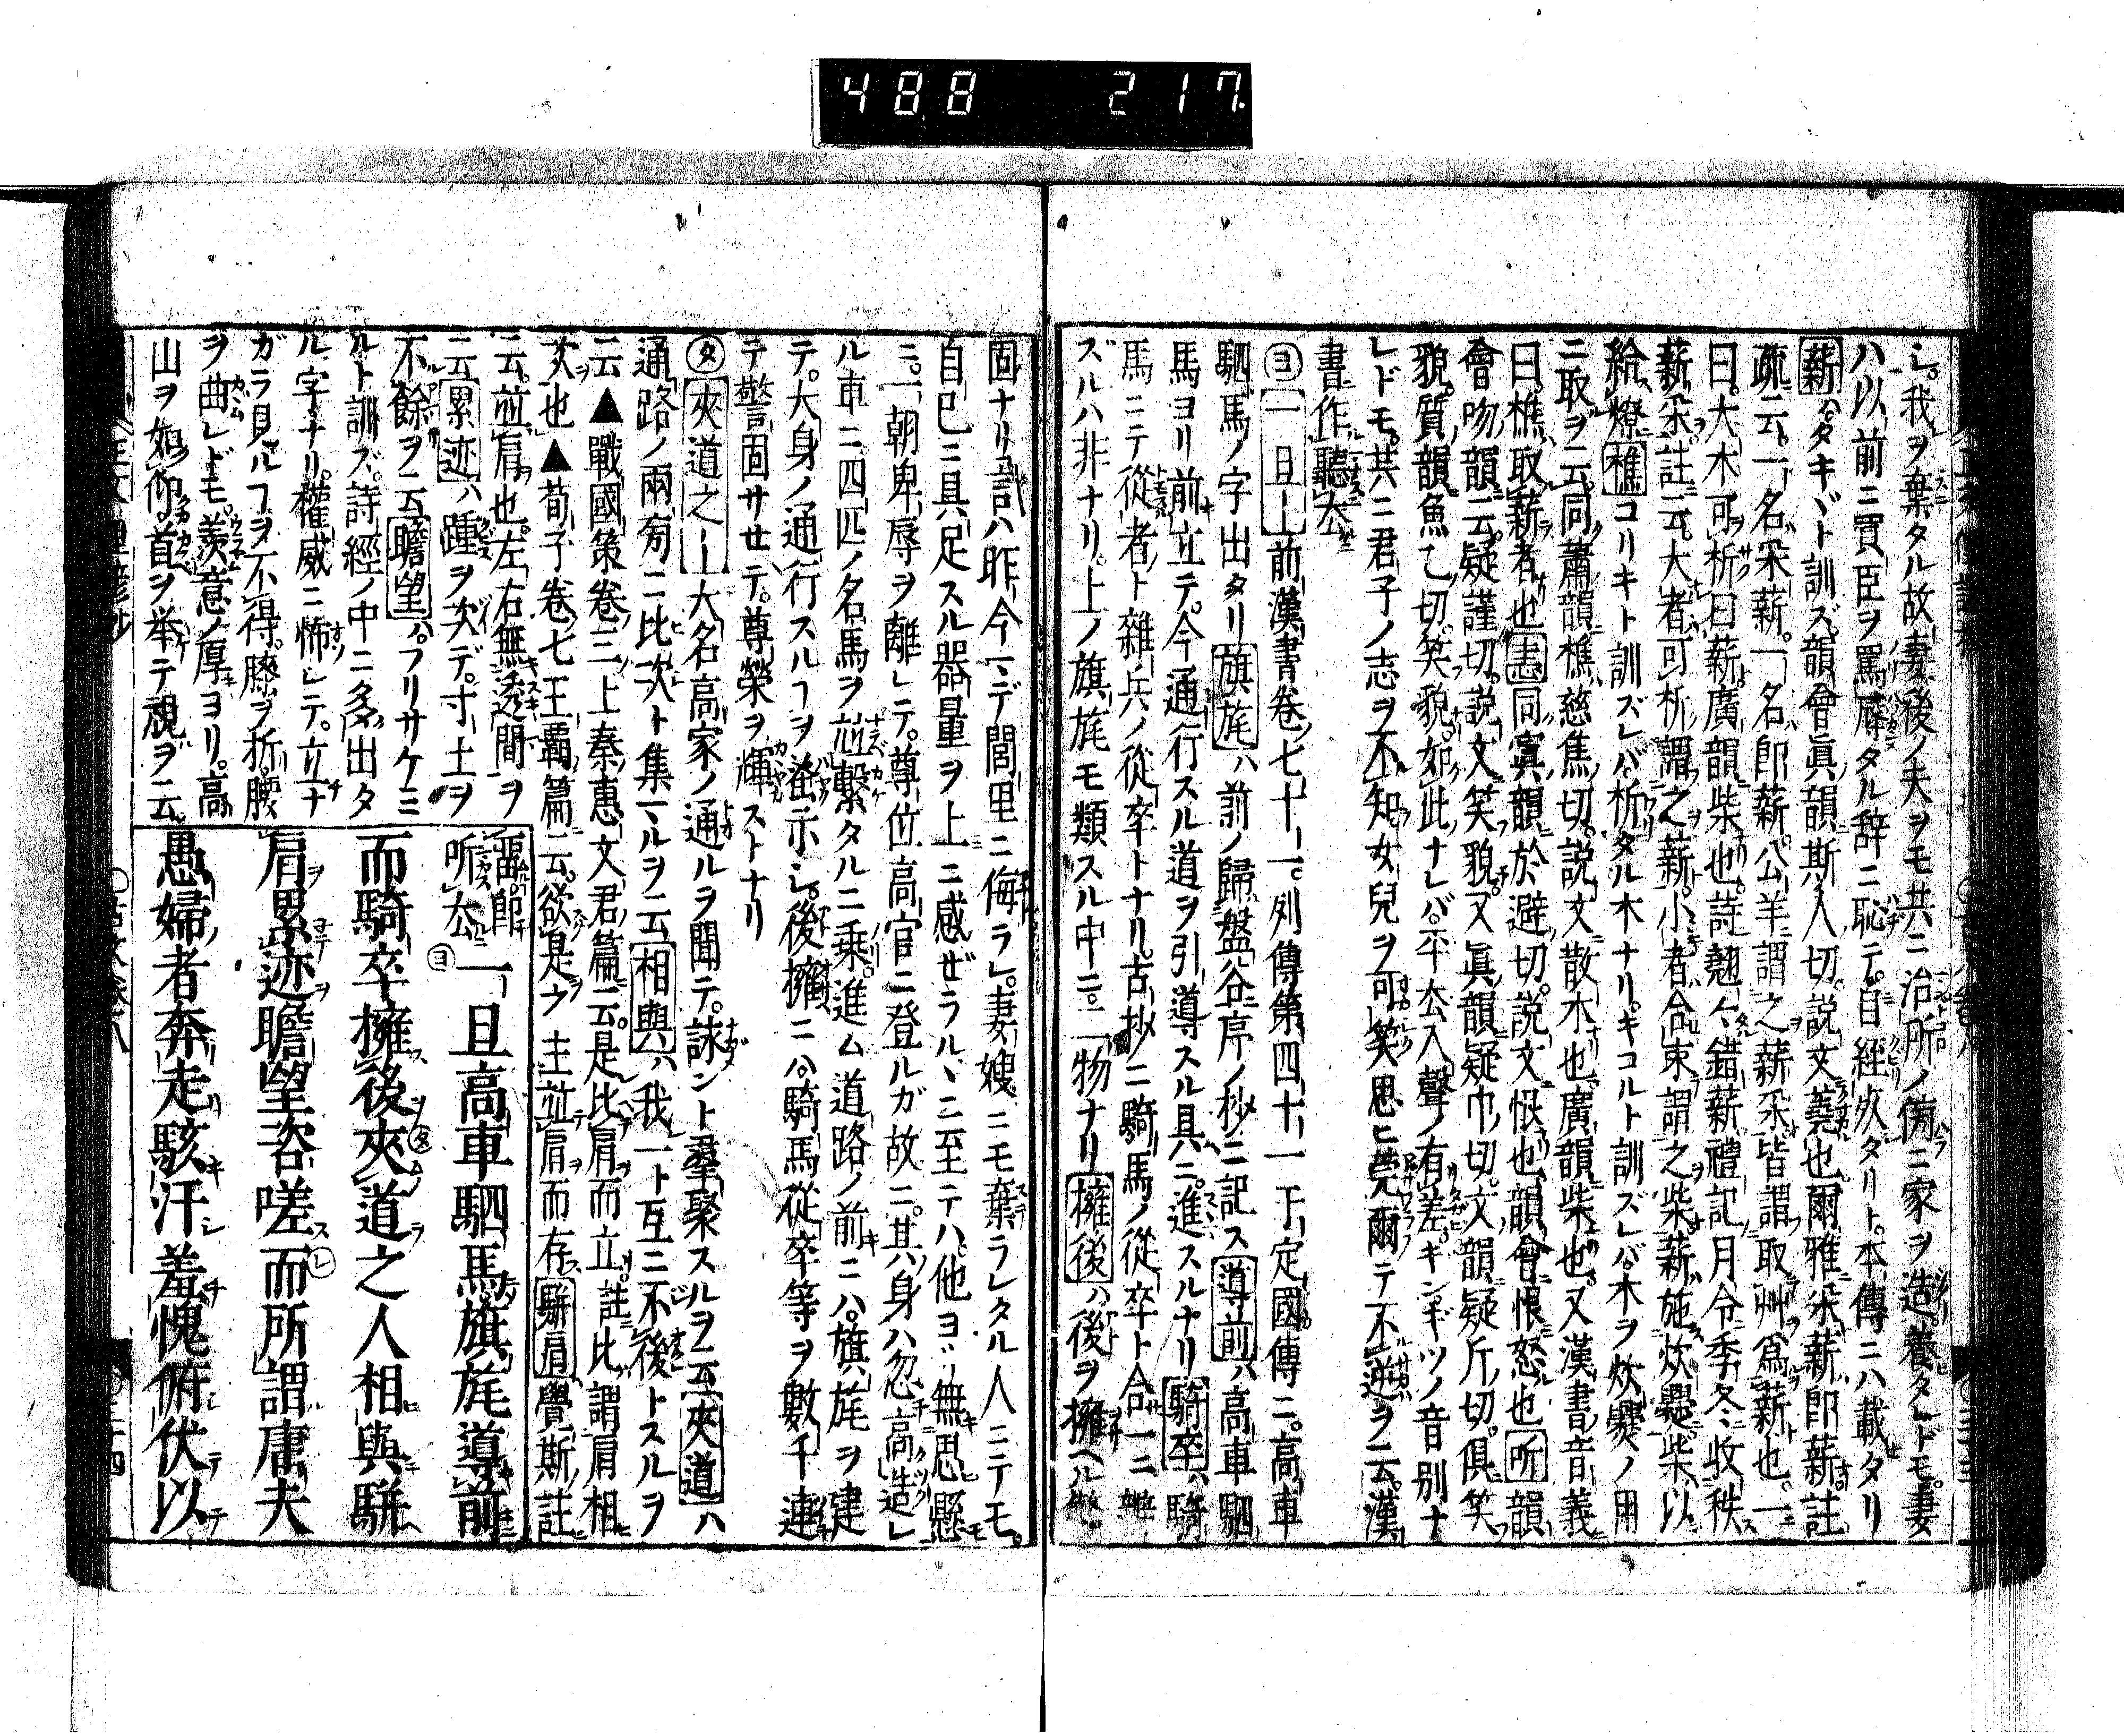 488 217
シ。我ヲ棄タル故妻後ノ夫ヲモ共ニ治所ノ傍ニ家ヲ造。養タレドモ。妻
ハ以前ニ買臣ヲ罵辱タル辞ニ恥テ。自經タリト。本傳ニハ載タリ
薪ハタキヾト訓ズ。韻會眞韻斯人切。説文蕘也。爾雅釆薪即薪註
疏云。一名釆薪。一名即薪。公羊謂之薪釆。皆謂取艸爲薪也。一
曰。大木可析曰薪。廣韻柴也。詩翹々錯薪。禮記月令季冬收秩
薪釆註云。大者可析謂之薪。小者合束謂之柴。薪施炊爨。柴以
給燎樵コリキト訓ズレバ。析タル木ナリ。キコルト訓ズレバ。木ヲ炊爨ノ用
ニ取ヲ云。同蕭韻樵慈焦切。説文散木也。廣韻柴也。又漢書音義
曰。樵取薪者也恚同寘韻於避切。説文恨也。韻會恨怒也听韻
會吻韻ニ云。疑謹切。説文笑貌。又眞韻疑巾切。文韻疑斤切。倶笑
貌。質韻魚乙切。笑貌。如此ナレバ。平厺入聲ノ有差。ギンギツノ音別ナ
レドモ。共ニ君子ノ志ヲ不知女兒ヲ可笑思ヒ莞爾テ不逆ヲ云。漢
書作聽厺
ヨ一旦ー前漢書卷七十一。列傳第四十一于定國傳ニ。高車
駟馬ノ字出タリ旗旄ハ前ノ歸盤谷序ノ抄ニ記ス導前ハ高車駟
馬ヨリ前立テ。今通行スル道ヲ引導スル具ニ。進スルナリ騎卒ハ騎
馬ニテ從者ト雜兵ノ從卒トナリ。古抄ニ騎馬ノ從卒ト合一ニ
ズルハ非ナリ。上ノ旗旄モ類スル中ニ。二物ナリ擁後ハ後ヲ擁ヘル
固ナリ言ハ昨今マデ閭里ニ侮ラレ。妻嫂ニモ棄ラレタル人ニテモ。
自已ニ具足スル器量ヲ上ニ感ゼラルヽニ至テハ。他ヨリ無思懸
ニ。一朝卑辱ヲ離レテ。尊位高官ニ登ルガ故ニ。其身ハ忽高造レ
ル車ニ四匹ノ名馬ヲ並繋タルニ乗。進ム道路ノ前ニハ。旗旄ヲ建
テ。大身ノ通行スルヿヲ釜示シ。後擁ニハ。騎馬從卒等ヲ數千連
テ警固サセテ。尊榮ヲ輝ストナリ
タ夾道之ー大名高家ノ通ルヲ聞テ。誺ント羣聚スルヲ云夾道ハ
通路ノ兩旁ニ比次ト集マルヲ云相與ハ我一ト互ニ不後トスルヲ
云▲戰國策卷三上秦惠文君篇云。是比肩而立。註比謂肩相
次也▲荀子卷七王覇篇云。欲是之主並肩而存駢肩觷斯註
云。並肩也。左右無透間ヲ
云累迹ハ踵ヲ次デ。寸土ヲ
不餘ヲ云瞻望ハ。フリサケミ
ルト訓ズ。詩經ノ中ニ多出タ
ル字ナリ。權威ニ怖レテ。立ナ
ガラ見ルヿヲ不得。膝ヲ折腰
ヲ曲レドモ。羨意ノ厚ヨリ。高
山ヲ如仰首ヲ举テ視ヲ云。
听厺一旦高車駟馬旗旄導前
而騎卒擁後夾道之人相與駢
肩累迹瞻望咨嗟而所謂庸夫
愚婦者奔走駭汗羞愧俯伏以